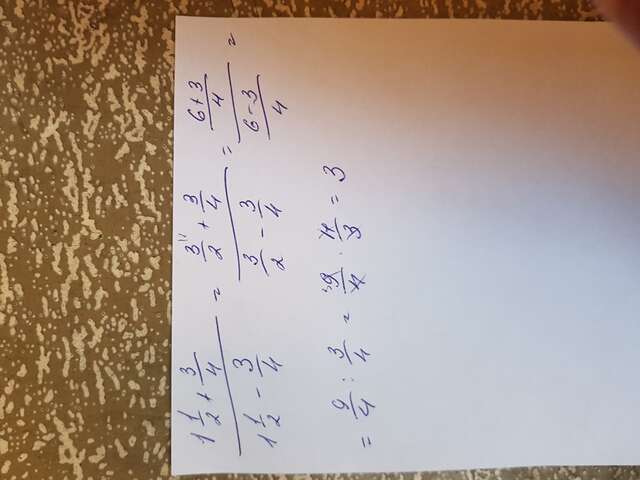 (1 1/2 + 3/4)/(1 1/2 - 3/4) = (3/2 + 3/4)/(3/2 - 3/4) = ((6+3)/4)/((6-3)/4) =
= 9/4 : 3/4 = 9/4 · 4/3 = 3